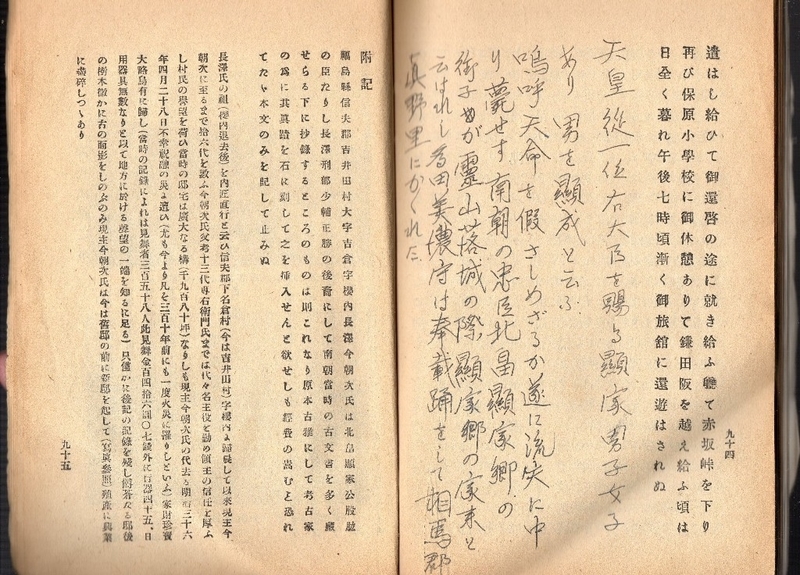 九十四
遣はし給ひて御還啓の途に就き給ふ軈て赤坂峠を下り
再び保原小學校に御休憩ありて鎌田阪を越え給ふ頃は
日全く暮れ午後七時頃漸く御旅館に還遊はされぬ
天皇從一位右大臣を賜る顯家男子女子
あり 男を顯成と云ふ
嗚呼天命を假さしめざるか遂に流矢に中
り薨せす南朝の忠臣北畠顯家卿の
御子めが靈山落城の際顯家卿の家来と
云はれし 美濃守は奉載踊をして相馬郡
真野里にかくれた
附記
福島縣信夫郡吉井田村大字吉倉字樓内長澤今朝次氏は北畠顯家公股肱
の臣たりし長澤刑部少輔正勝の後裔にして南朝當時の古文書を多く藏
せらる下に抄録するところのものは則これなり原本古雅にして考古家
の爲に其眞蹟を石に刻して之を挿入せんと欲せしも經費の嵩むを恐れ
てたゞ本文のみを記して止みぬ
長澤氏の祖(樓内退去後)を内匠直行と云ひ信夫郡下名倉村(今は吉井田村)字樓内に歸農して以來現主今
朝次に至るまで拾六代を致ふ今朝次氏父考十三代専右衛門氏までは代々名主役を勤め領主の信任を厚ふ
し村民の譽望を荷ひ當時の邸宅は廣大なる構(千九百八十坪)なりしも現主今朝次氏の代去る明治三十六
年四月二十八日不幸祝融の災に遭ひ(尤も今より凡を三百十年前にも一度火災に罹りしといふ)家財珍寶
大略烏有に歸し(當時の記録によれは見舞者三百五十八人此見舞金百四拾六圓〇七錢外に行器四十五、日
用器具無數なりと以て地方に於ける聲望の一端を知るに足る)只僅かに後記の記録を殘し蒼なる邸後
の樹木徴かに古の面影をしのぶのみ現主今朝次氏は今は舊邸の前に新邸を起して(寫眞參照)殖產に興業
に粉碎しつゝあり
九十五